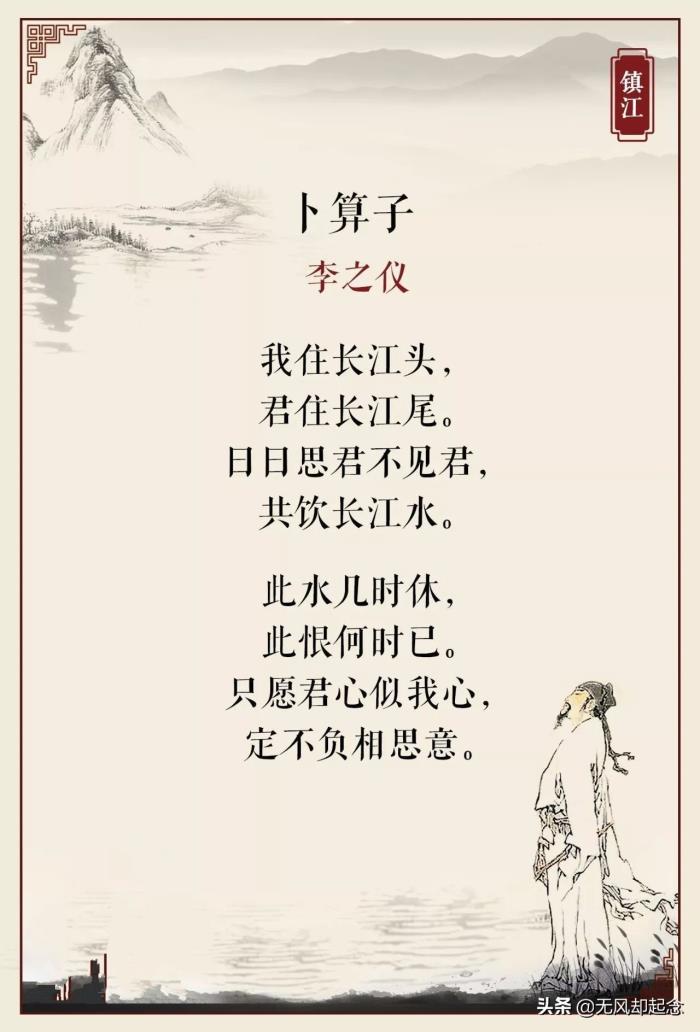 镇江
卜算子
李之仪
我住长江头，
君住长江尾。
日日思君不见君，
共饮长江水。
此水几时休，
此恨何时已。
只愿君心似我心，
定不负相思意。
头条 @无风却起念